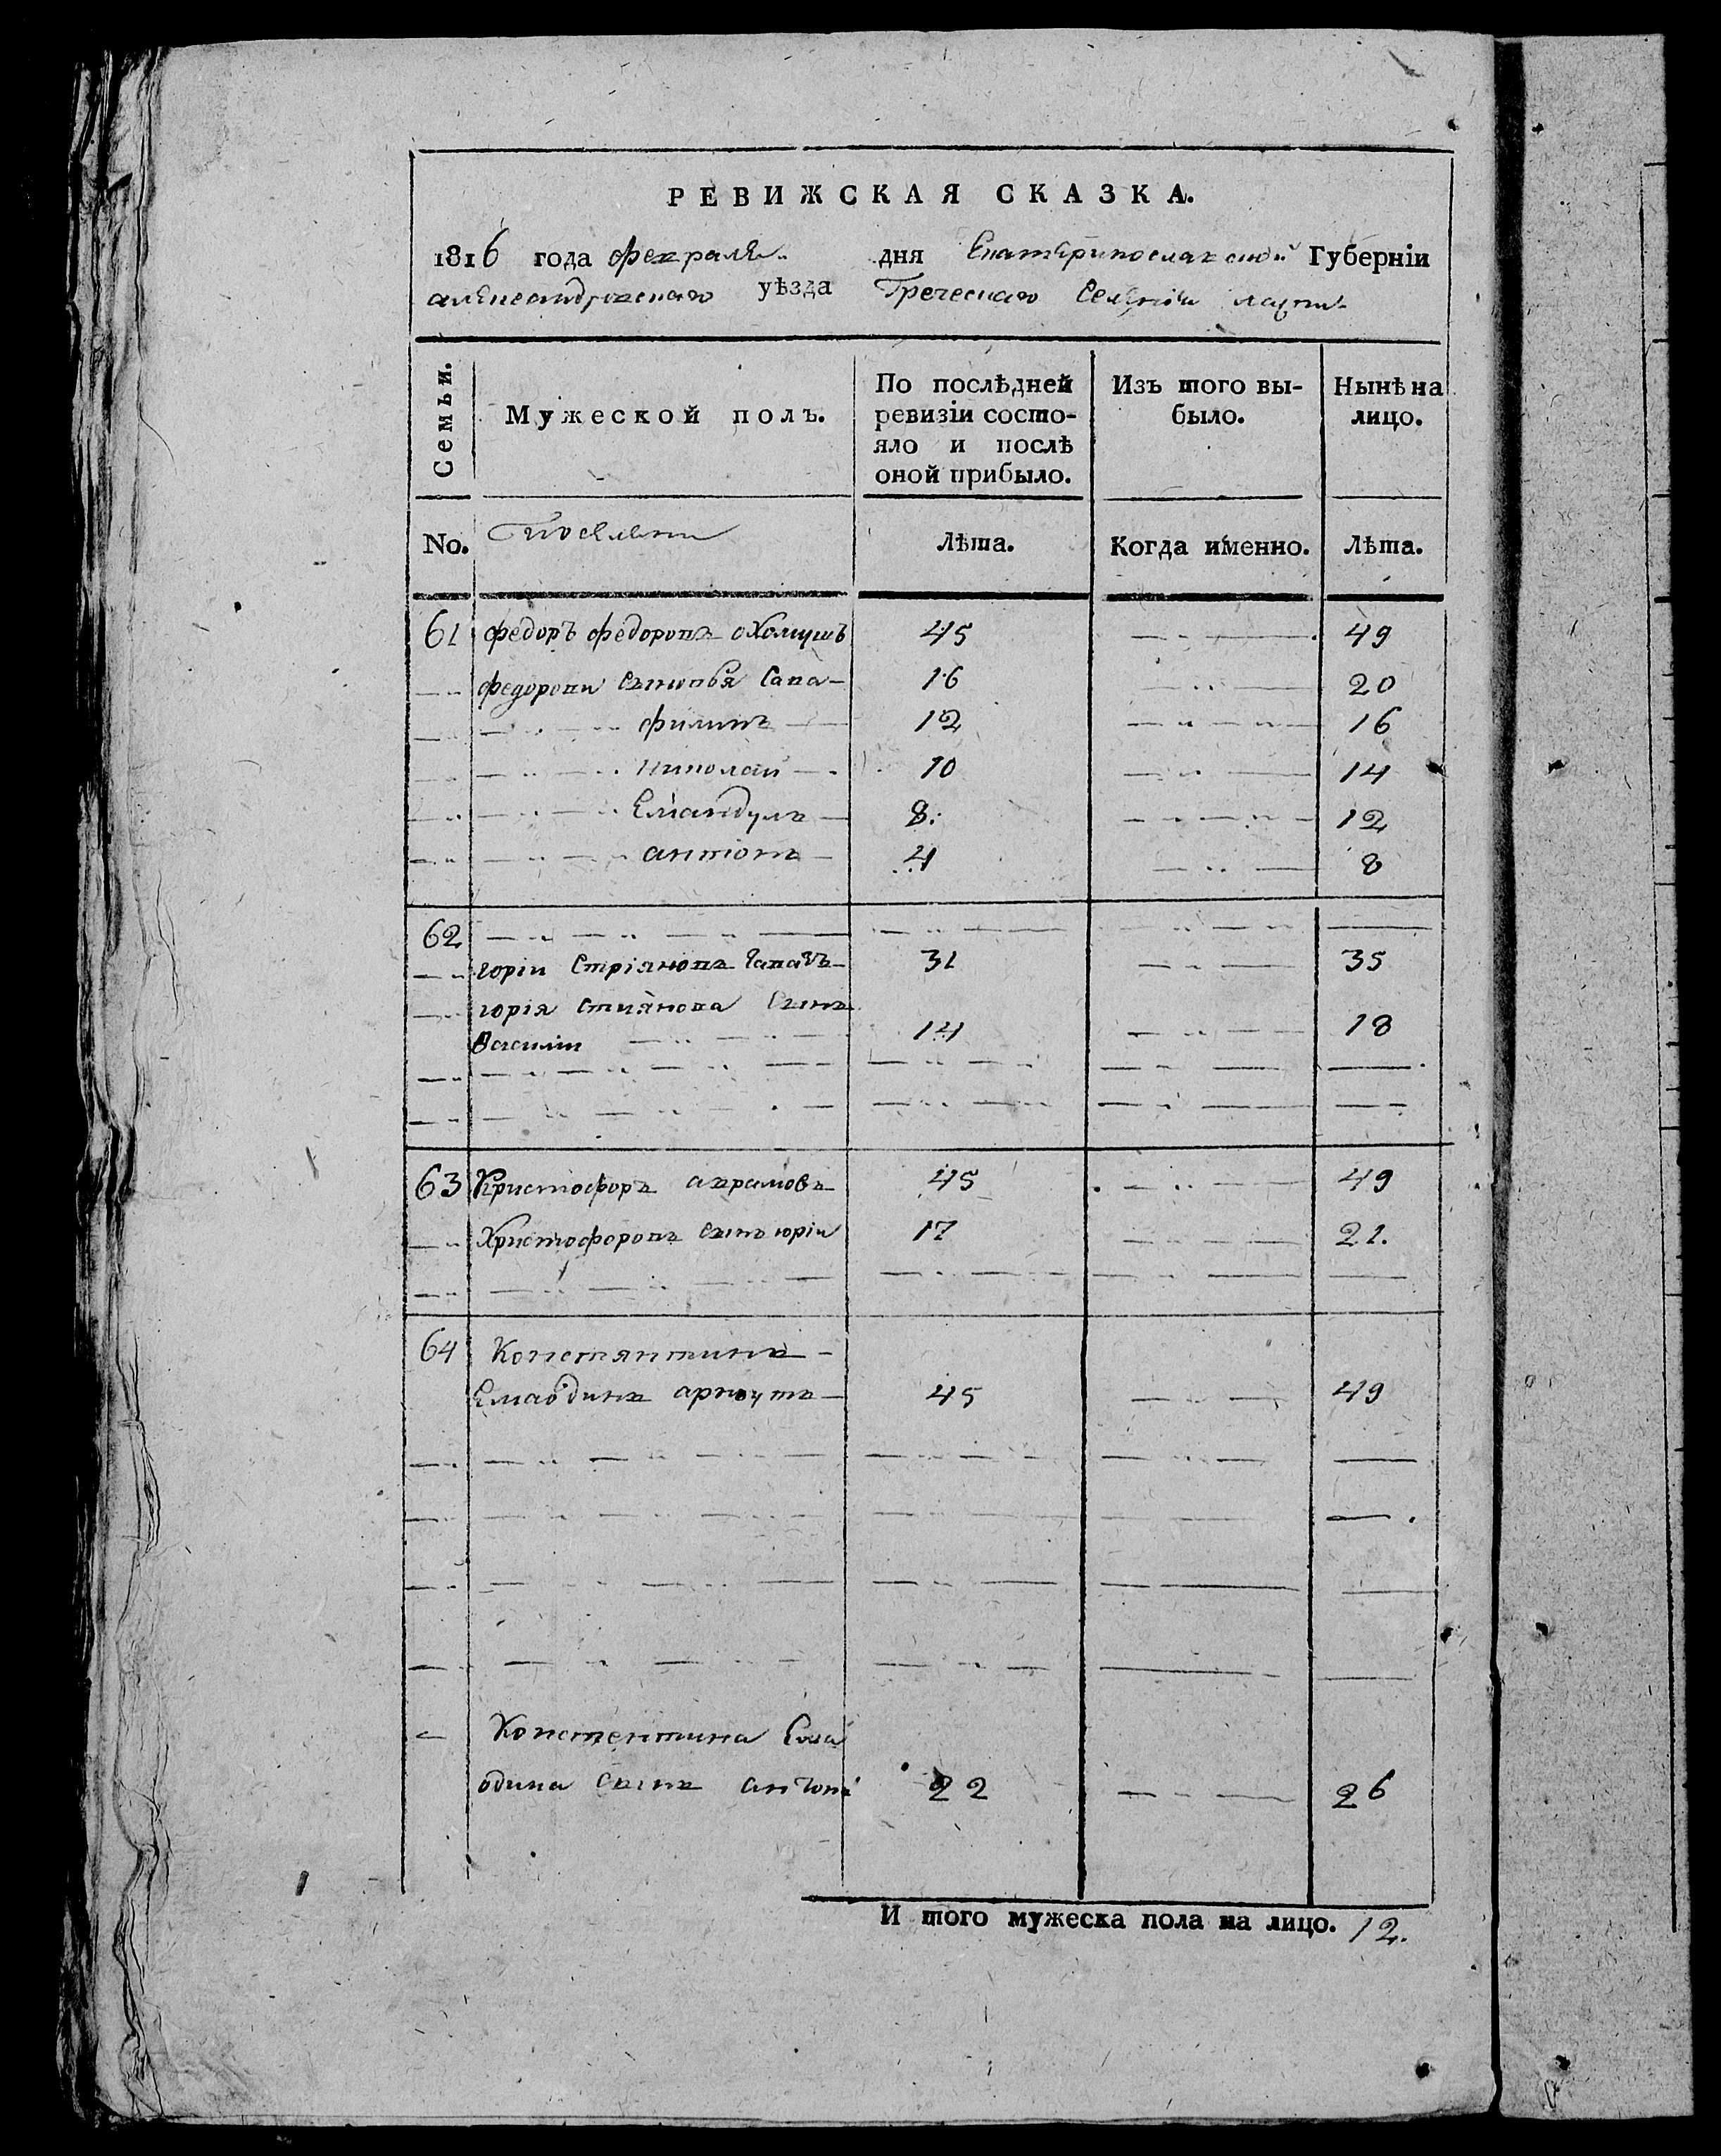 РЕВИЖСКАЯ СКАЗКА.
1816 года февраля дня Екатеринославской Губернїи
александровскаго уѣзда Греческаго Селенїи
Семьи.
Мужеской полъ.
По послѣдней
ревизїи состо-
яло и послѣ
оной прибыло.
Изъ того вы-
было.
Нынѣ на
лицо.
No. Поселяни Лѣта. Когда именно. Лѣта.
61 федоръ федоровъ 45 49
федорови сыновья Сава 16 20
филипъ 12 16
николай 10 14
8 12
антонъ 4 8
62
горїи 31 35
горїя сынъ
Василїи 14 18
63 Христофоръ аврамовъ 45 49
Христофоровъ сынъ юрїи 17 21.
64 Константинъ
Елаодинъ арноутъ 45 49
Константина Ела
одина сынъ антонъ 22 26
И того мужеска пола на лицо. 12.